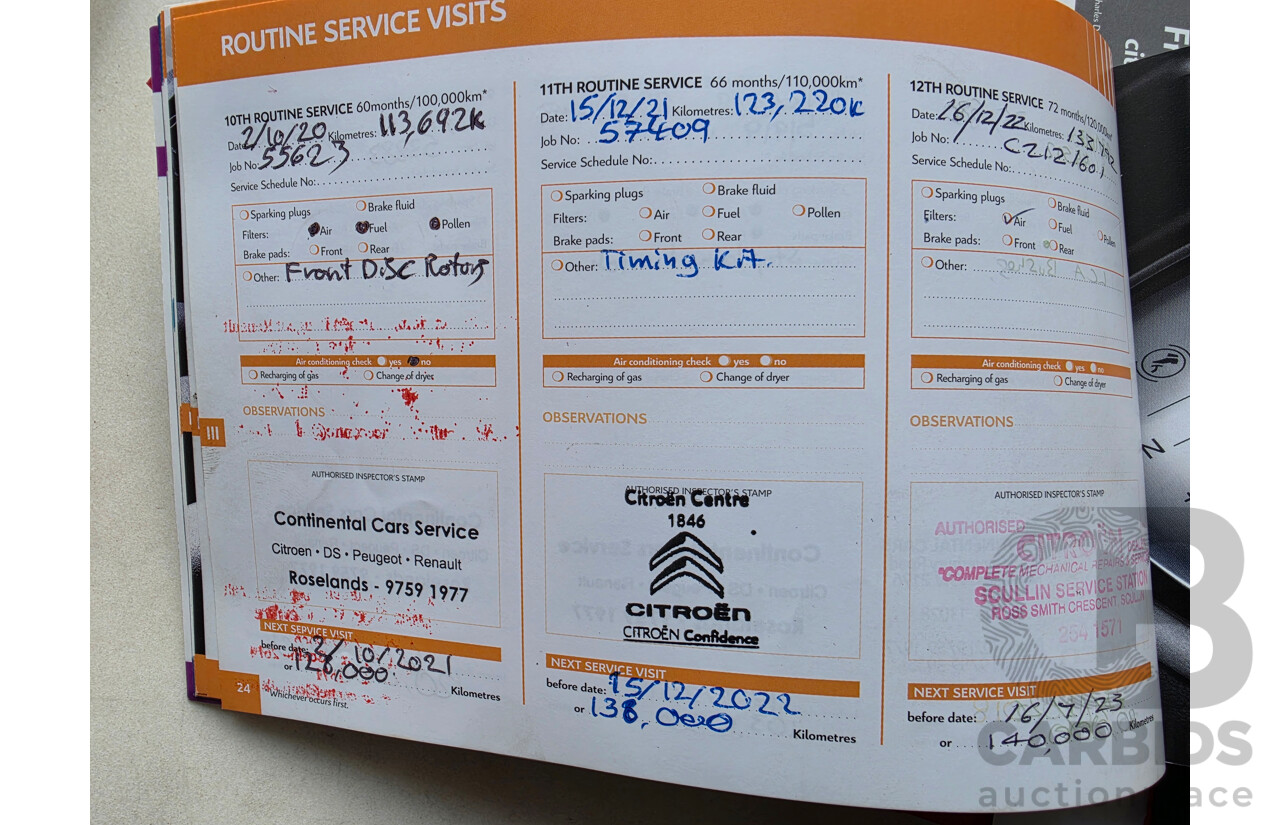 ROUTINE SERVICE VISITS
10TH ROUTINE SERVICE 60months/100,000km*
Date: 2/10/20 Kilometres: 113,692K
Job No: 55623
Service Schedule No:
Sparking plugs Brake fluid
Filters: Air Fuel Pollen
Brake pads: Front Rear
Other: Front DiSC Rotors
Air conditioning check yes no
Recharging of gas Change of dryer
OBSERVATIONS
AUTHORISED INSPECTOR'S STAMP
Continental Cars Service
Citroen • DS • Peugeot • Renault
Roselands - 9759 1977
NEXT SERVICE VISIT
before date: 2/10/2021
or 128,000. Kilometres
24 Whichever occurs first.
III
11TH ROUTINE SERVICE 66 months/110,000km*
Date: 15/12/21 Kilometres: 123,220K
Job No: 57409
Service Schedule No:
Sparking plugs Brake fluid
Filters: Air Fuel Pollen
Brake pads: Front Rear
Other: Timing Kit.
Air conditioning check yes no
Recharging of gas Change of dryer
OBSERVATIONS
AUTHORISED INSPECTOR'S STAMP
Citroën Centre
1846
CITROËN
CITROËN Confidence
NEXT SERVICE VISIT
before date: 15/12/2022
or 138,000 Kilometres
12TH ROUTINE SERVICE 72 months/120,000km*
Date: 16/12/22 Kilometres:
Job No: C2121601
Service Schedule No:
Sparking plugs Brake fluid
Filters: Air Fuel Pollen
Brake pads: Front Rear
Other: LCA Bushes
Air conditioning check yes no
Recharging of gas Change of dryer
OBSERVATIONS
AUTHORISED INSPECTOR'S STAMP
AUTHORISED
CITROËN
*COMPLETE MECHANICAL REPAIRS
SCULLIN SERVICE STATION
ROSS SMITH CRESCENT, SCULLIN
254 1571
NEXT SERVICE VISIT
before date: 16/7/23
or 140,000 Kilometres
N
CARBIDS
auction place